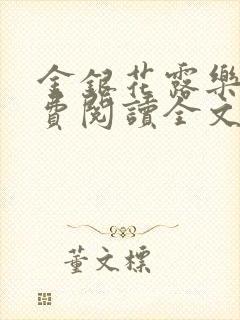 金銀花露樂
費閱讀全文
董文標